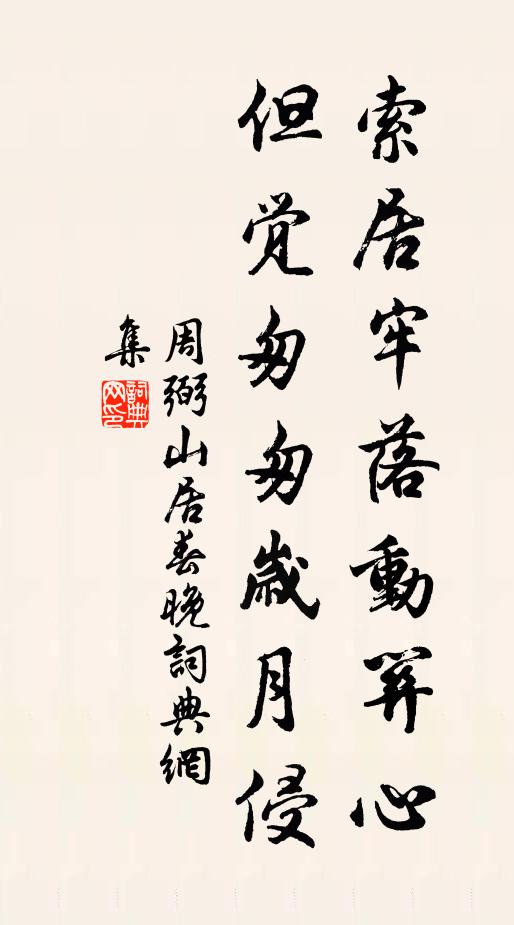 索居牢落動心
但觉匆匆歲月侵
周弼山居春晚詞典網
集
詞典
网印